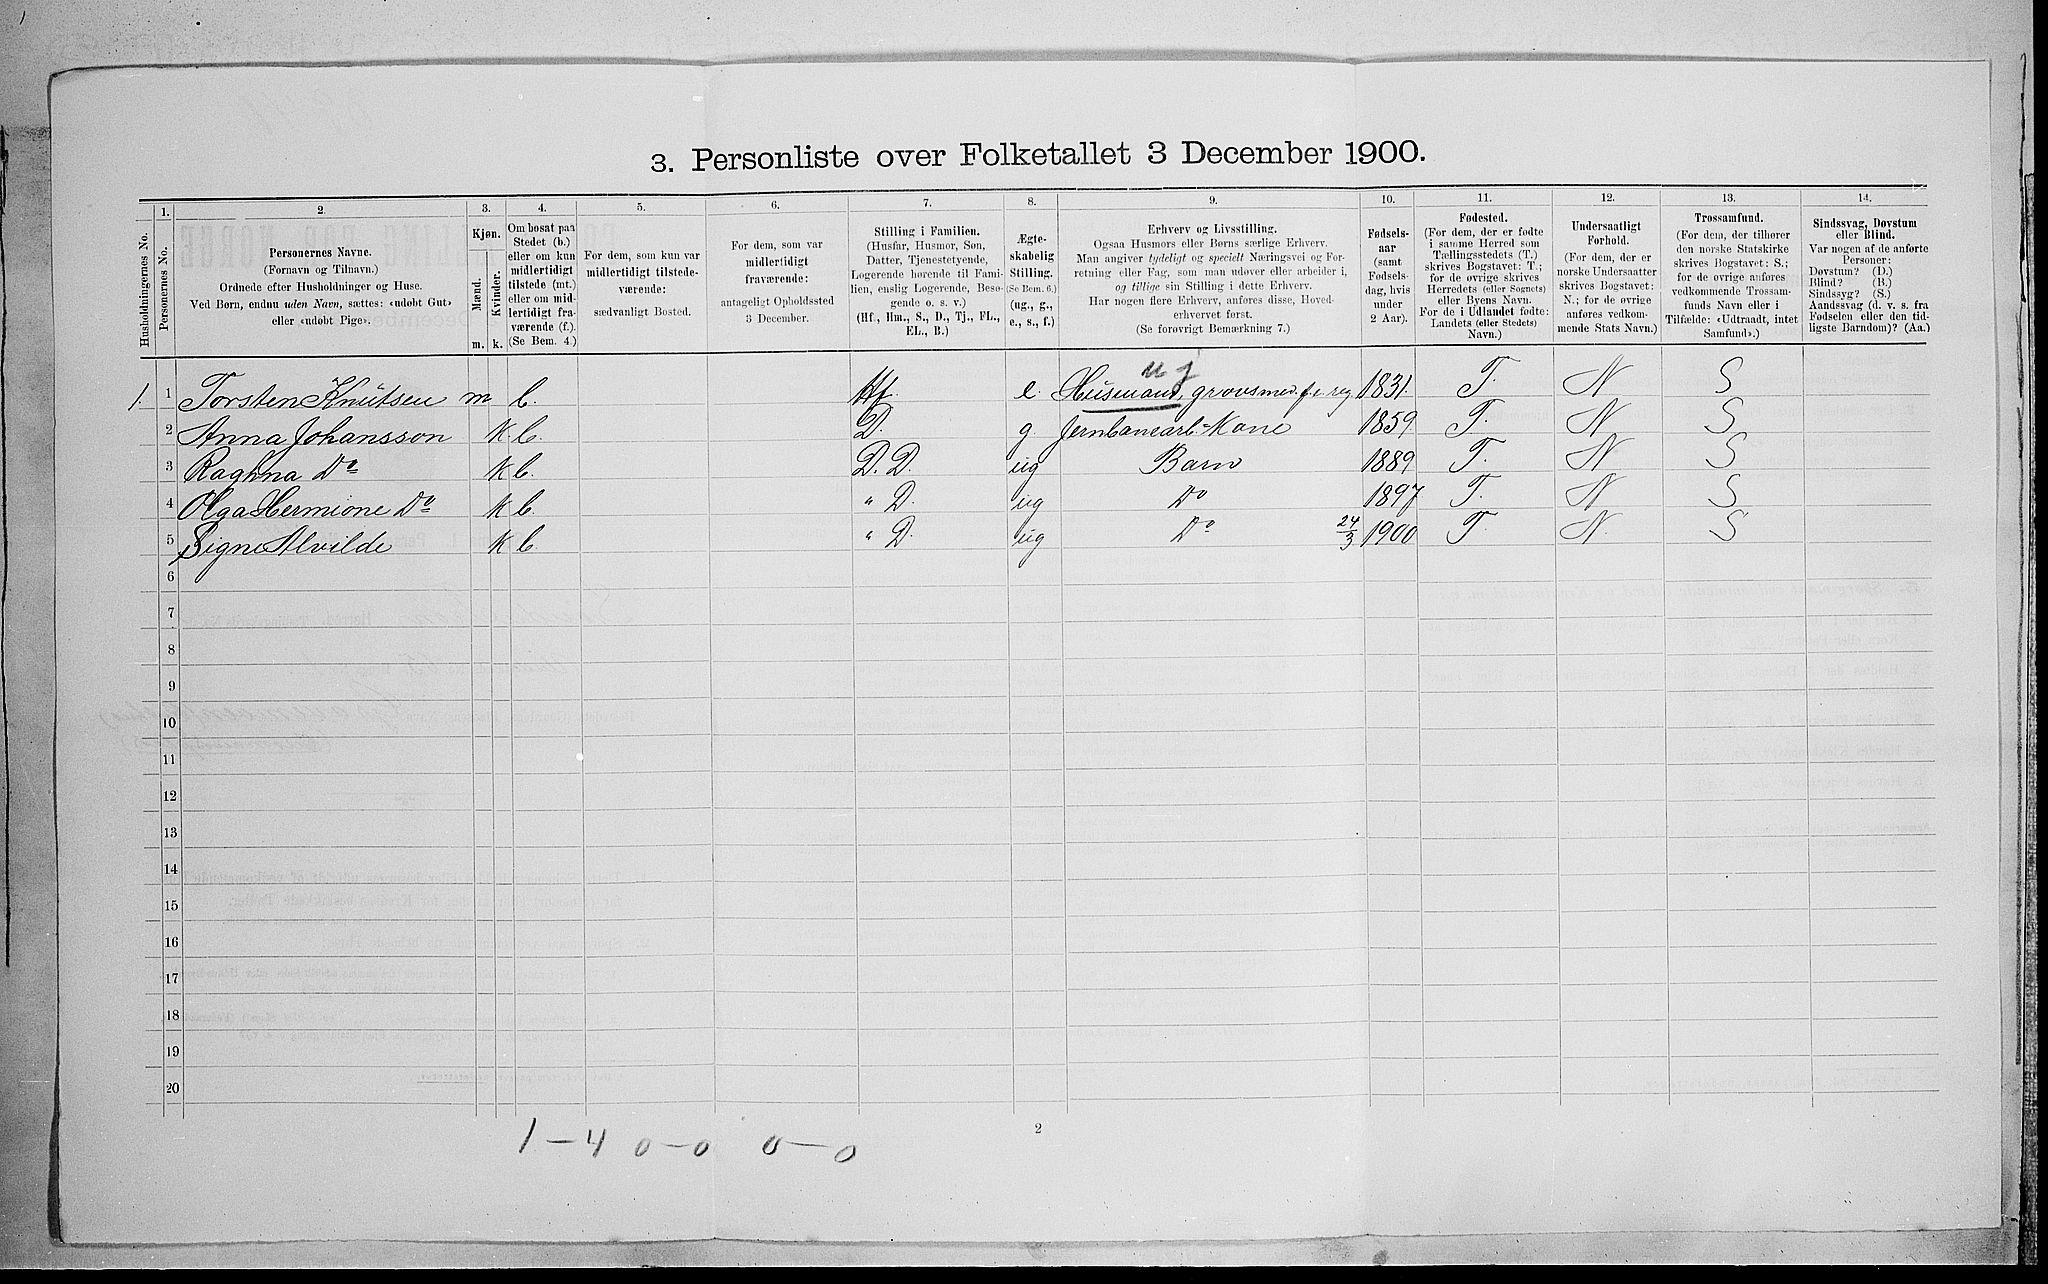 3. Personliste over Folketallet 3 December 1900.
1. 2. 3. 4. 5. 6. 7. 8. 9. 10. 11. 12. 13. 14.
Husholdningernes No.
Personernes No.
Personernes Navne.
(Fornavn og Tilnavn.)
Ordnede efter Husholdninger og Huse.
Ved Børn, endnu uden Navn, sættes: «udøbt Gut»
eller «udøbt Pige».
Kjøn.
Mænd.
Kvinder.
m. k.
Om bosat paa
Stedet (b.)
eller om kun
midlertidigt
tilstede (mt.)
eller om mid-
lertidigt fra-
værende (f.).
(Se Bem. 4.)
For dem, som kun var
midlertidigt tilstede-
værende:
sædvanligt Bosted.
For dem, som var
midlertidigt
fraværende:
antageligt Opholdssted
3 December.
Stilling i Familien.
(Husfar, Husmor, Søn,
Datter, Tjenestetyende,
Logerende hørende til Fami-
lien, enslig Logerende, Besø-
gende o. s. v.)
(Hf., Hm., S., D., Tj., FL.,
EL., B.)
Ægte-
skabelig
Stilling.
(Se Bem. 6.)
(ug., g.,
e., s., f.)
Erhverv og Livsstilling.
Ogsaa Husmors eller Børns særlige Erhverv.
Man angiver tydeligt og specielt Næringsvei og For-
retning eller Fag, som man udøver eller arbeider i,
og tillige sin Stilling i dette Erhverv.
Har nogen flere Erhverv, anføres disse, Hoved-
erhvervet først.
(Se forøvrigt Bemærkning 7.)
Fødsels-
aar
(samt
Fødsels-
dag, hvis
under
2 Aar).
Fødested.
(For dem, der er fødte
i samme Herred som
Tællingsstedets (T.)
skrives Bogstavet: T.;
for de øvrige skrives
Herredets (eller Sognets)
eller Byens Navn.
For de i Udlandet fødte:
Landets (eller Stedets)
Navn.)
Undersaatligt
Forhold.
(For dem, der er
norske Undersaatter
skrives Bogstavet:
N.; for de øvrige
anføres vedkom-
mende Stats Navn.)
Trossamfund.
(For dem, der tilhører
den norske Statskirke
skrives Bogstavet: S.;
for de øvrige anføres
vedkommende Trossam-
funds Navn eller i
Tilfælde: «Udtraadt, intet
Samfund».)
Sindssvag, Døvstum
eller Blind.
Var nogen af de anførte
Personer:
Døvstum? (D.)
Blind? (B.)
Sindssyg? (S.)
Aandssvag (d. v. s. fra
Fødselen eller den tid-
ligste Barndom)? (Aa.)
1. 1 Torsten Knutsen m b. Hf. e. Husmand, grovsmed f. e. reg 1831. T. N S
2 Anna Johansson K b. D. g. Jernbanearb.-Kone 1859 T. N S
3 Raghna Do K b. D. D. ug Barn 1889 T. N S
4 Olga Hermione Do K b. " D ug Do 1897 T. N S
5 Signe Alvilde K b. " D. ug Do 24/3 1900 T. N. S
6
7
8
9
10
11
12
13
14
15
16
17
18
19
20
2
1 – 4 0 – 0 0 – 0